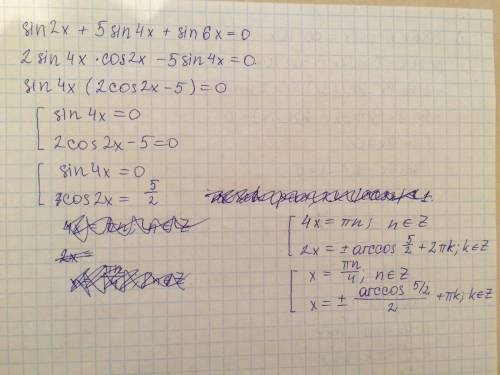 sin2x + 5sin4x + sin6x = 0
2sin4x · cos2x − 5sin4x = 0
sin4x (2cos2x − 5) = 0
[ sin4x = 0
2cos2x − 5 = 0
[ sin4x = 0
cos2x = 5/2
2x =
[ 4x = πn; n ∈ Z
2x = ± arccos 5/2 + 2πk; k ∈ Z
[ x = πn/4; n ∈ Z
x = ± arccos 5/2 / 2 + πk; k ∈ Z